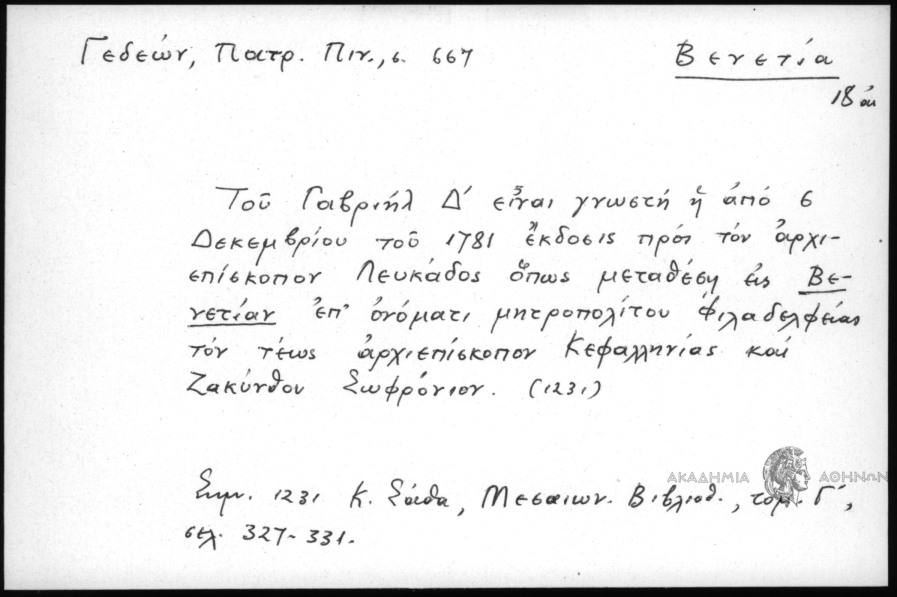 Γεδεών, Πατρ. Πιν., σ. 667
Βενετία
18 αι
Τοῦ Γαβριήλ Δ' εἶναι γνωστή ἡ ἀπό 6
Δεκεμβρίου τοῦ 1781 ἔκδοσις πρός τόν ἀρχι-
επίσκοπον Λευκάδος ὅπως μεταθέσῃ εἰς Βε-
νετίαν ἐπ' ὀνόματι μητροπολίτου Φιλαδελφείας
τόν τέως ἀρχιεπίσκοπον Κεφαλληνίας καί
Ζακύνθου Σωφρόνιον. (1231)
Σημ. 1231 Κ. Σάθα, Μεσαιων. Βιβλιοθ., τομ. Γ',
σελ. 327-331.
ΑΚΑΔΗΜΙΑ ΑΘΗΝΩΝ